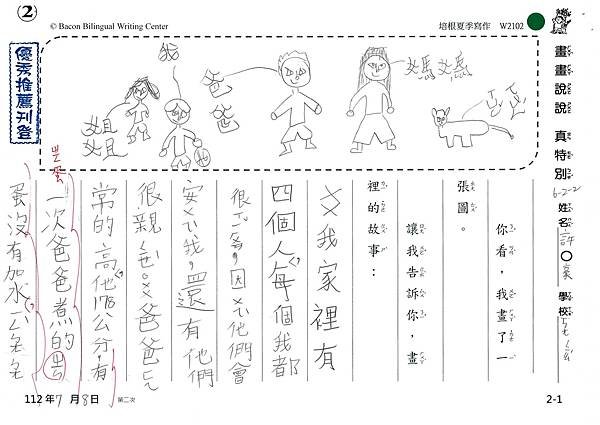 ②
© Bacon Bilingual Writing Center
培根夏季寫作 W2102
優秀推薦刊登
畫畫說說 真特別
6-2-2
姓名 許○豪
學校
我
爸爸
媽媽
姐姐
你看，我畫了一
張圖。
讓我告訴你，畫
裡的故事：
我家裡有
四個人，每個我都
很ㄒㄧˇ，因ㄨㄟˋ他們會
安ㄨㄟˋ我，還有他們
很親ㄑㄧㄝˋ。爸爸ㄈㄟ
常的高他178公分，有
一次爸爸煮的
蛋沒有加水
112年7月8日
第二次
2-1